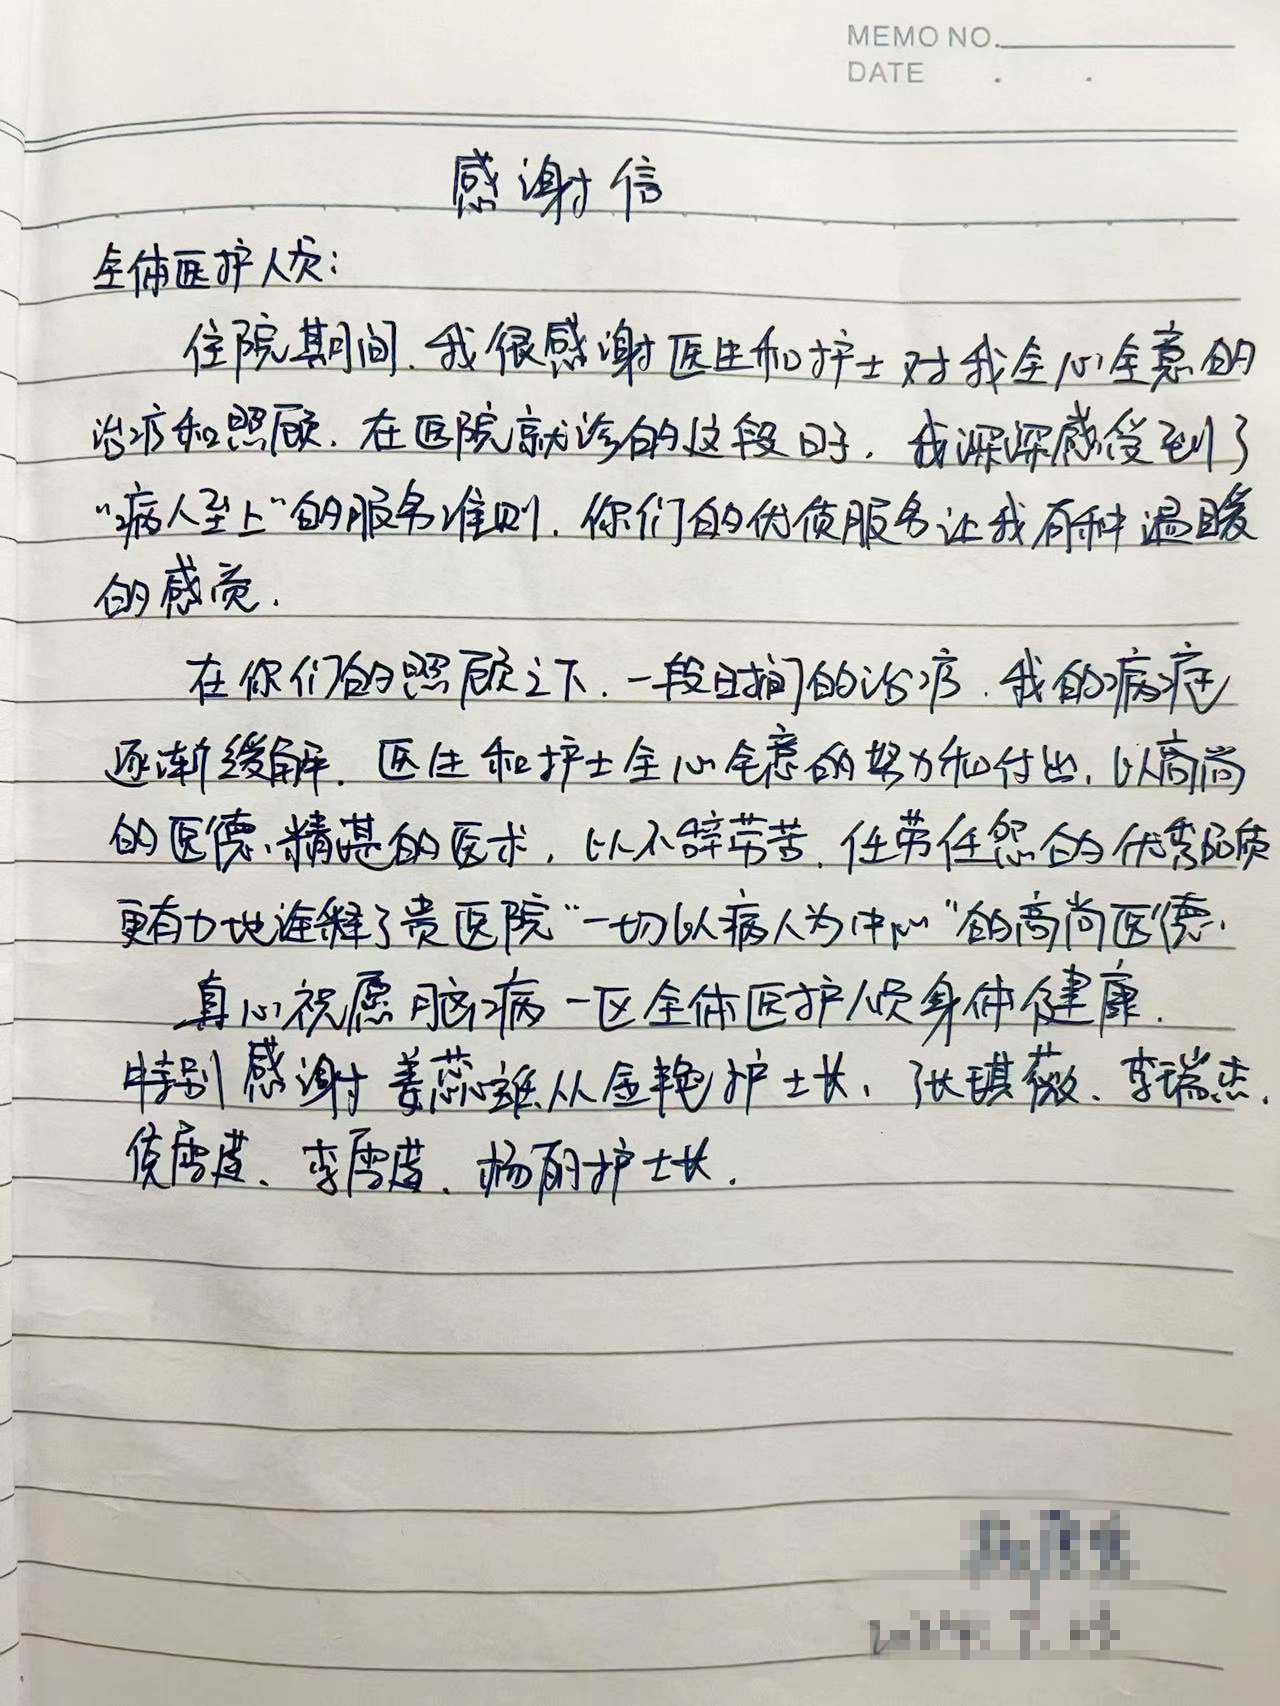 MEMO NO.
DATE . .
感谢信
全体医护人员:
住院期间.我很感谢医生和护士对我全心全意的
治疗和照顾.在医院就诊的这段日子.我深深感受到了
"病人至上"的服务准则.你们的优质服务让我有种温暖
的感觉.
在你们的照顾之下.一段时间的治疗.我的病症
逐渐缓解.医生和护士全心全意的努力和付出.以高尚
的医德、精湛的医术,以不辞劳苦.任劳任怨的优秀品质
更有力地诠释了贵医院"一切以病人为中心"的高尚医德.
真心祝愿脑病一区全体医护人员身体健康.
特别感谢姜蕊 从金艳护士长、张琪薇、李瑞杰.
侯雪莲、李雪莲、杨丽护士长.